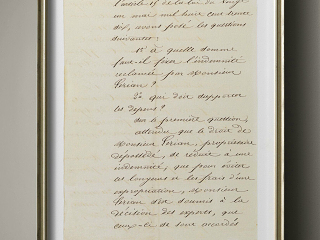 l'article 15 de la loi du vingt
un mai mil huit cent trente
dix, avons posé les questions
suivantes:
1° à quelle somme
faut-il fixer l'indemnité
réclamée par Monsieur
2° qui doit supporter
les dépens?
Sur la première question,
attendu que le droit de
Monsieur propriétaire
dépossédé, de réduire à une
indemnité, que pour éviter
les longueurs et les frais d'une
expropriation, Monsieur
s'en soumis à la
décision des experts, que
ceux-ci se sont accordés